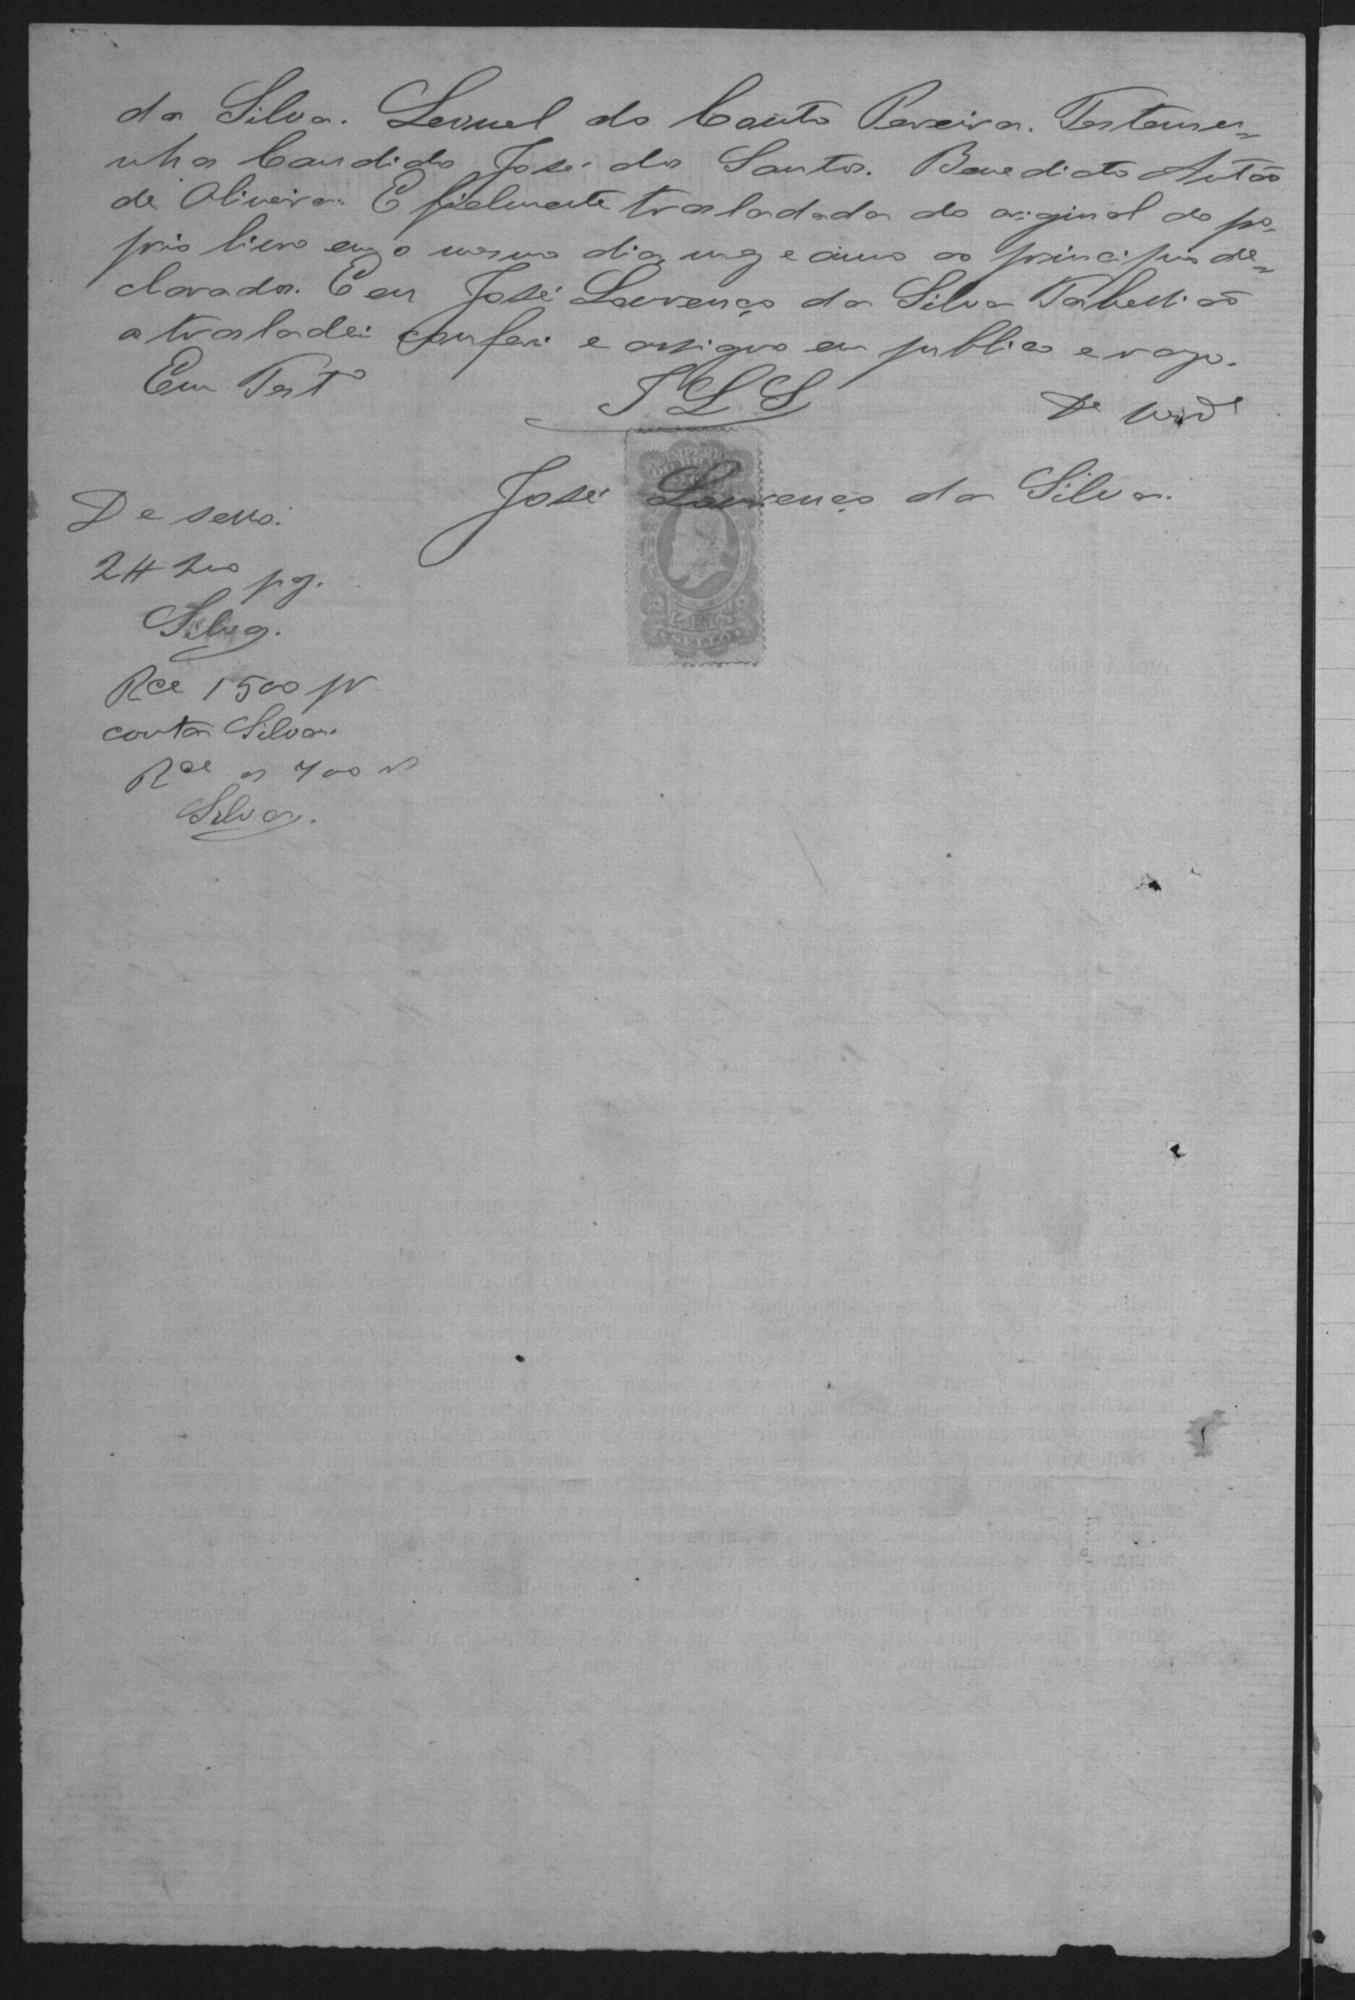 da Silva. Leonel do Couto Pereira. Testemu-
nha Candido José dos Santos. Benedicto Antão
de Oliveira. E fielmente trasladada do original do pro-
prio livro em o mesmo dia mez e anno ao principio de-
clarados. E eu José Lourenço da Silva Tabellião
a trasladei conferi e assigno em publico e razo.
Em Testº
JLS
De verde
José Lourenço da Silva.
De sello.
2# 200 pg.
Silva.
Rce 1500 pr
conta Silva.
Rce 700
Silva.
IMPERIO
DO BRAZIL
200
SELLO